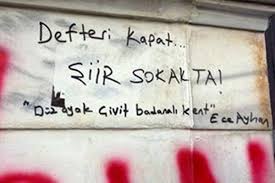 Defteri Kapat...
ŞİİR SOKAKTA!
"Düz ayak Çivit badanalı kent" Ece Ayhan